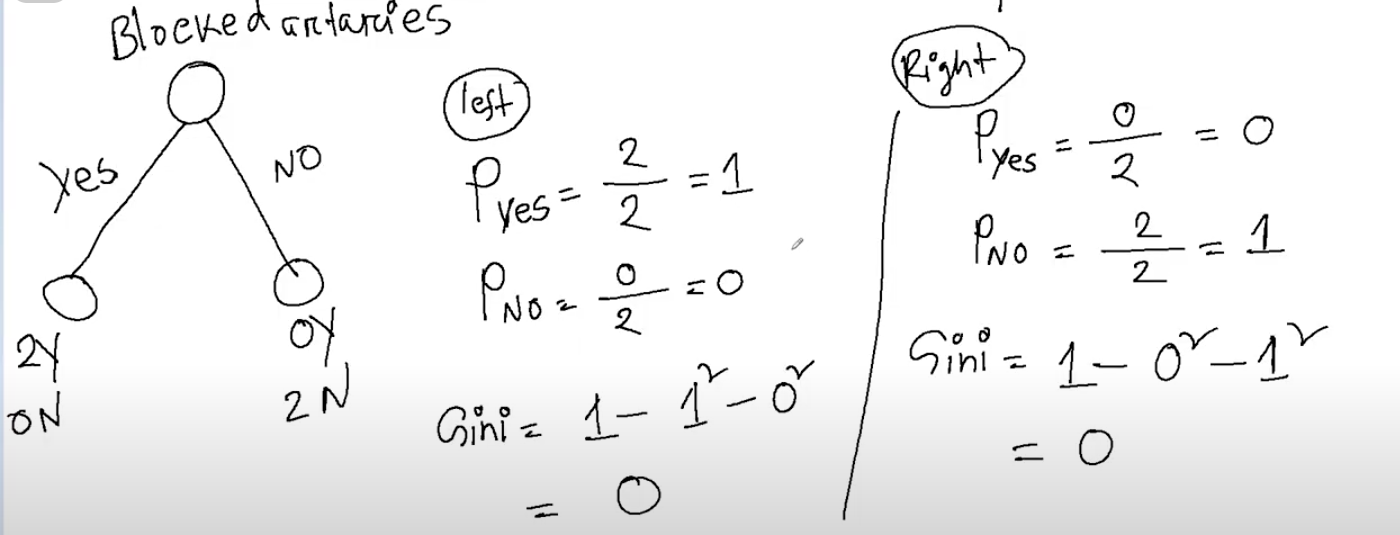 Blocked artaries
Yes
NO
2Y
0N
0Y
2N
left
P_Yes = 2/2 = 1
P_NO = 0/2 = 0
Gini = 1 - 1² - 0²
= 0
Right
P_Yes = 0/2 = 0
P_NO = 2/2 = 1
Gini = 1 - 0² - 1²
= 0